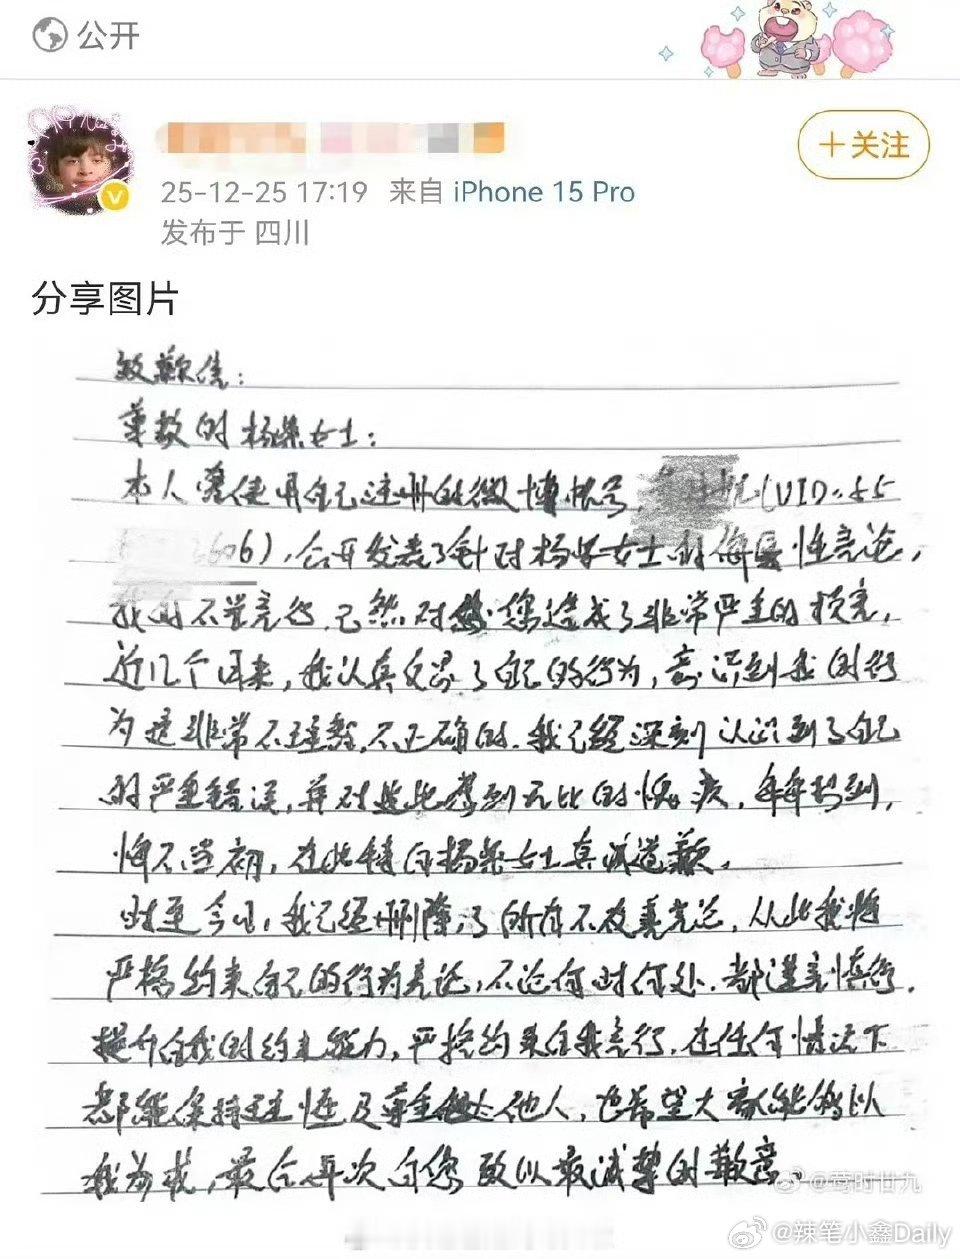 公开
25-12-25 17:19 来自 iPhone 15 Pro
+关注
发布于 四川
分享图片
致歉信：
尊敬的杨紫女士：
本人曾使用自己注册的微博帐号，(UID：55
606)，公开发表了针对杨紫女士的侮辱性言论，
我的不当言行，已然对您造成了非常严重的损害，
近几个月来，我认真反思了自己的行为，意识到我的行
为是非常不理智，不正确的。我已经深刻认识到了自己
的严重错误，并对此感到无比的愧疚，每每想到，
悔不当初，在此特向杨紫女士真诚道歉。
时至今日，我已经删除了所有不友善言论，从此我将
严格约束自己的行为言论，不论何时何处，都谨言慎行，
提升自我的约束能力，严格约束自我言行，在任何情况下
都能保持理性及尊重他人，也希望大家能够以
我为戒，最后再次向您致以最诚挚的歉意。
@莺时廿九
@辣笔小鑫Daily